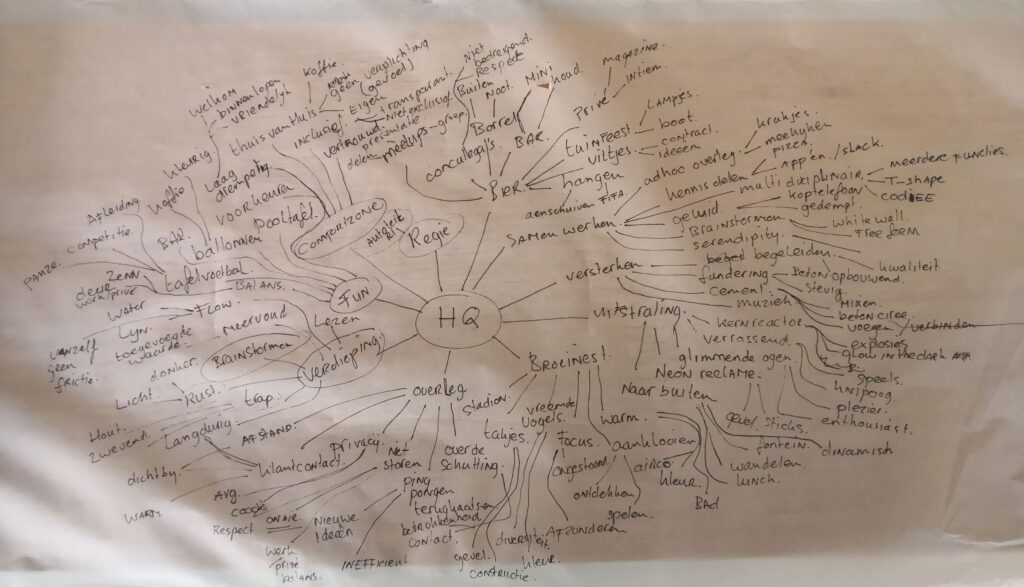 HQ
Regie
BAR
MINI
houd.
Borrel
Noot.
Buiten
Niet
bedreigend.
Respect
concullega's
meetups
groep
hangen
viltjes
tuinfeest
Privé
Intiem
magazine.
LAMPJES.
boot.
contract.
Ideeen
SAMEN werken
aanschuiven
FIFA.
adhoc overleg.
krukjes.
meekijken
PIZZA
kennis delen
App'en / slack.
multi disciplinair.
meerdere functies.
T-shape
geluid.
koptelefoon
gedempt.
Brainstormen
white wall.
Free form
serendipity.
versterken
begeleiden.
kwaliteit.
fundering
BETON
opbouwend.
stevig
cement.
MIXEN.
beton ciree.
voegen / verbinden
muziek
UITSTRALING.
kernreactor
explosies
glow in the dark
verrassend.
speels.
knipoog.
glimmende ogen.
plezier.
enthousiast.
NEON reclame.
Naar buiten
sticks.
fontein.
dinamisch
wandelen.
lunch.
BAD
BROEINEST.
warm.
aanklooien
airco
kleur.
ontdekken
spelen.
Focus.
ongestoord.
AFZONDEREN
vreemde
vogels.
diversiteit.
kleur.
takjes
gevel.
constructie.
Stadion.
overleg
over de
schutting.
ping
pongen
terughaalsen
betrokkenheid
contact.
Niet
storen
Nieuwe
Ideeën
INEFFICIENT
privacy.
ON AIR.
Respect.
werk
privé
balans.
klantcontact.
AFSTAND.
Avg.
google
dichtby.
WARM
Langdurig
verdieping.
Lezen
trap.
Hout.
Zwevend.
Rust.
donker.
Licht.
Brainstormen
meervoud.
FUN
Flow.
water
Lyn.
toegevoegde
waarde.
vanzelf
geen
frictie.
BALANS.
tafelvoetbal.
Afleiding
competitie
pauze.
ZENN
deur
werk/privé
ballonnen
BAR.
koffie
pooltafel.
voorheuren
COMFORTZONE
Laag
drempelig
kleurig
thuis van Huis
Welkom
binnenlopen
vriendelyk
koffie
geen
verplichting
(gevoel)
Eigen
Inclusief.
transparant.
Niet exclusief
vertrouwd
presentatie
delen